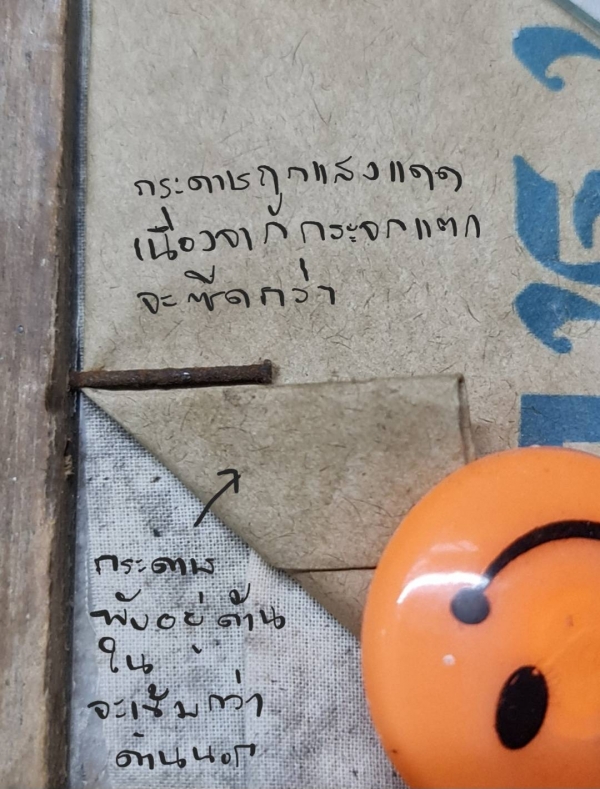 กระดาษถูกแสงแดด
เนื่องจากกระจกแตก
จะซีดกว่า
กระดาษ
พับอยู่ด้าน
ใน
จะเข้มกว่า
ด้านนอก